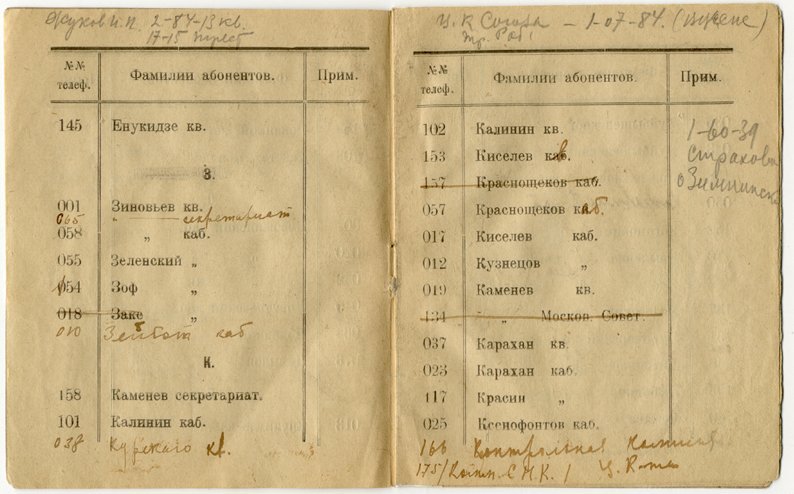 Жуков И.П. 2-84-13 кв.
17-15 трест
№№ телеф. Фамилии абонентов. Прим.
145 Енукидзе кв.
З.
001 Зиновьев кв.
065 " секретариат
058 „ каб.
055 Зеленский „
054 Зоф „
018 Закс „
010 каб
И.
158 Каменев секретариат.
101 Калинин каб.
038 Курского кв.
Ц.К Союза — 1-07-84.
Раб.
№№ телеф. Фамилии абонентов. Прим.
102 Калинин кв. 1-60-39
153 Киселев кв. Страхов
157 Краснощеков каб.
057 Краснощеков каб.
017 Киселев каб.
012 Кузнецов „
019 Каменев кв.
134 „ Москов. Совет.
037 Карахан кв.
023 Карахан каб.
117 Красин „
025 Ксенофонтов каб.
166 Контрольная
175